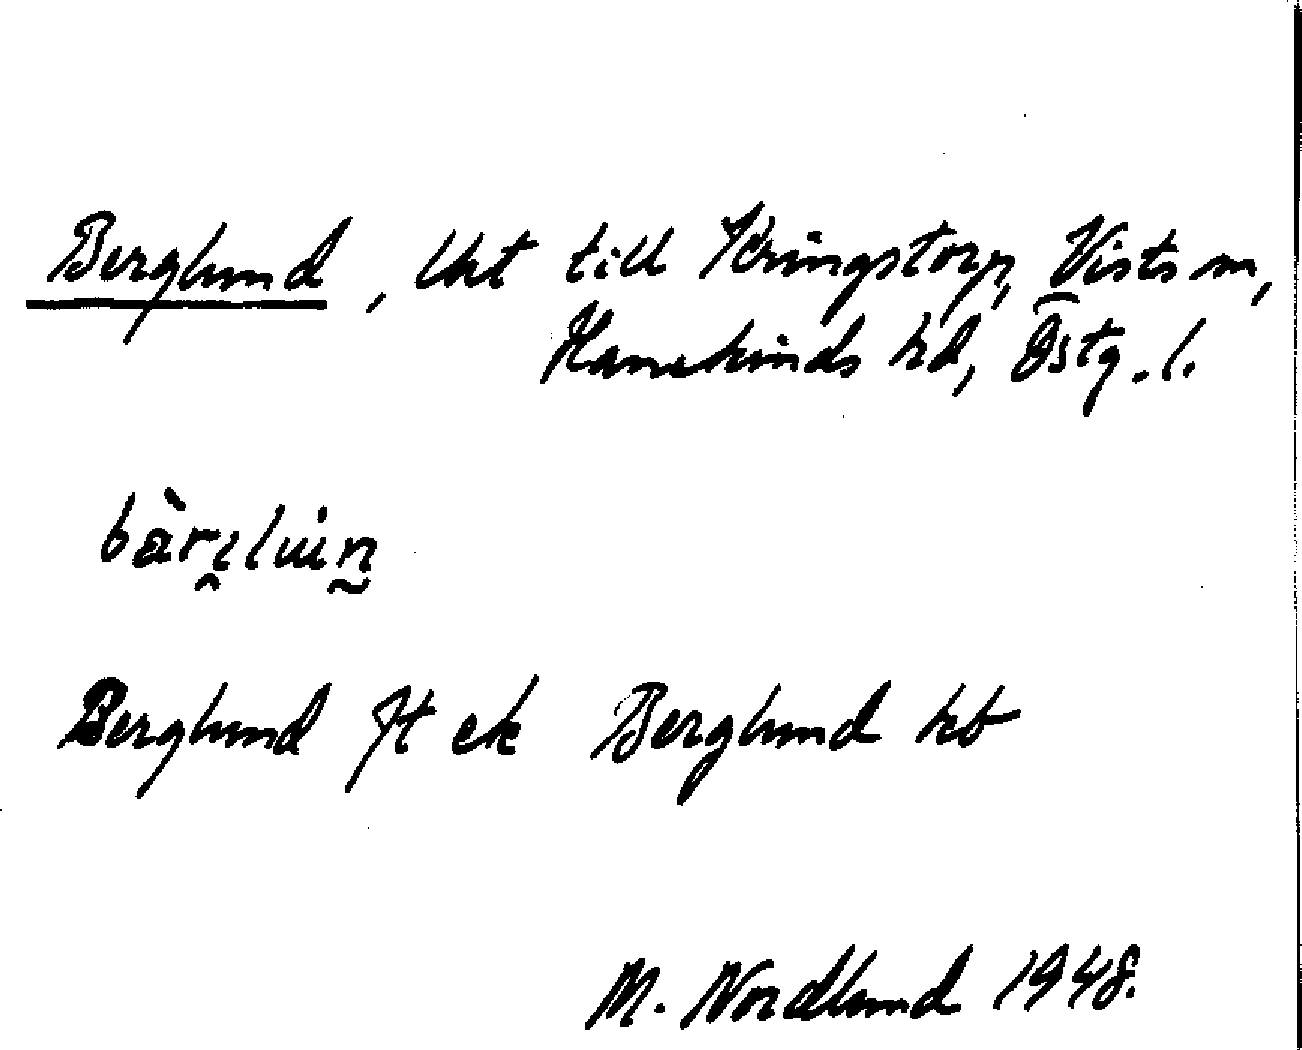 Berglund, lht till Kringstorp, Vists sn,
Hanekinds hd, Östg. l.
Berglund Jt ek Berglund hb
M. Nordlund 1948.